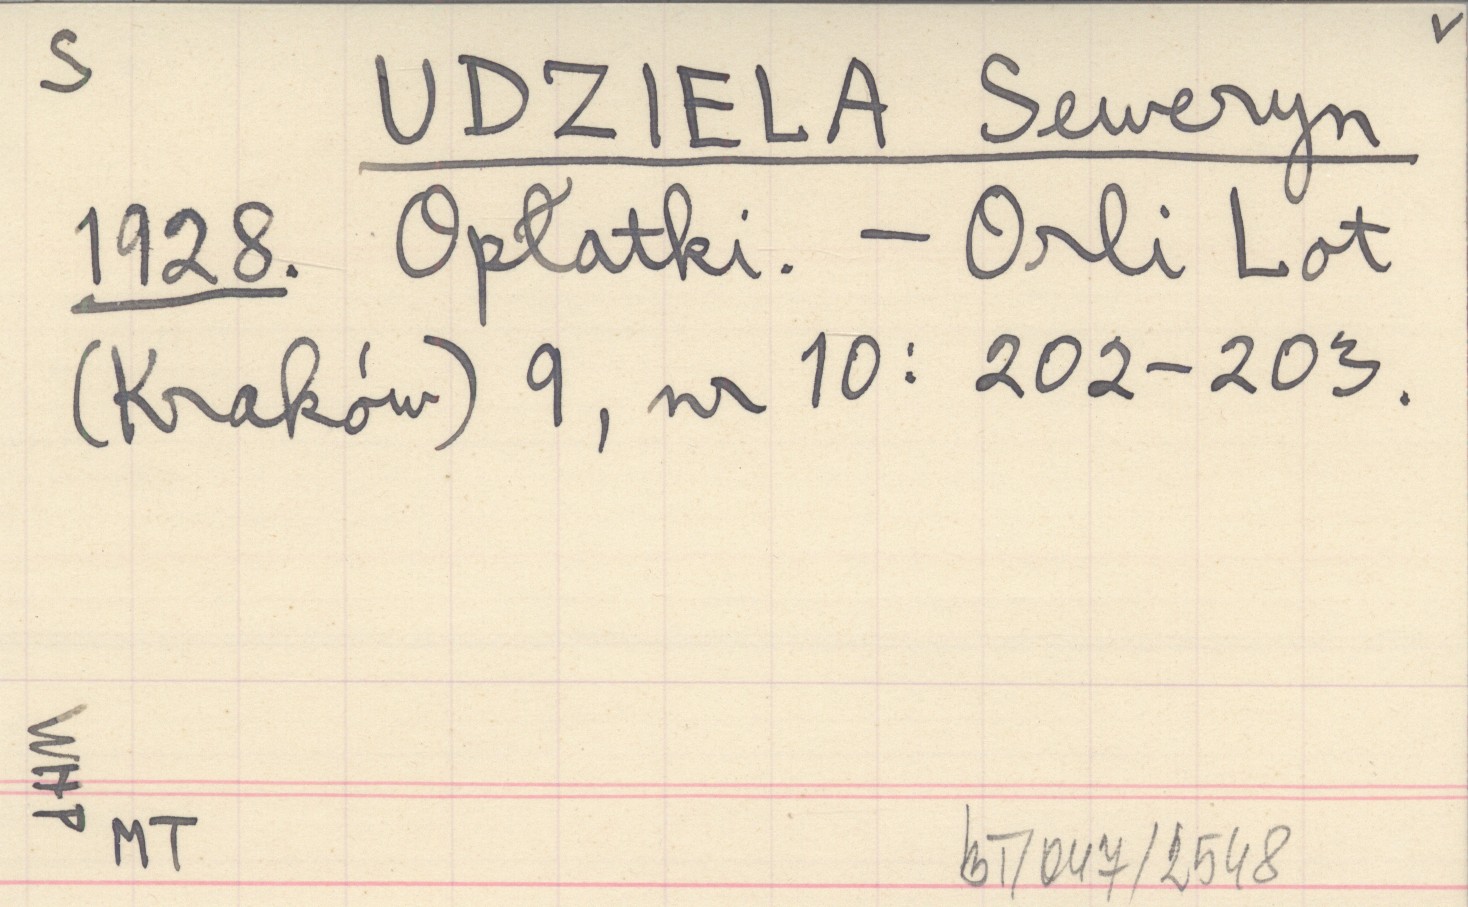 S
v
UDZIELA Seweryn
1928. Opłatki. – Orli Lot
(Kraków) 9, nr 10: 202-203.
WHP
MT
bT/047/2548